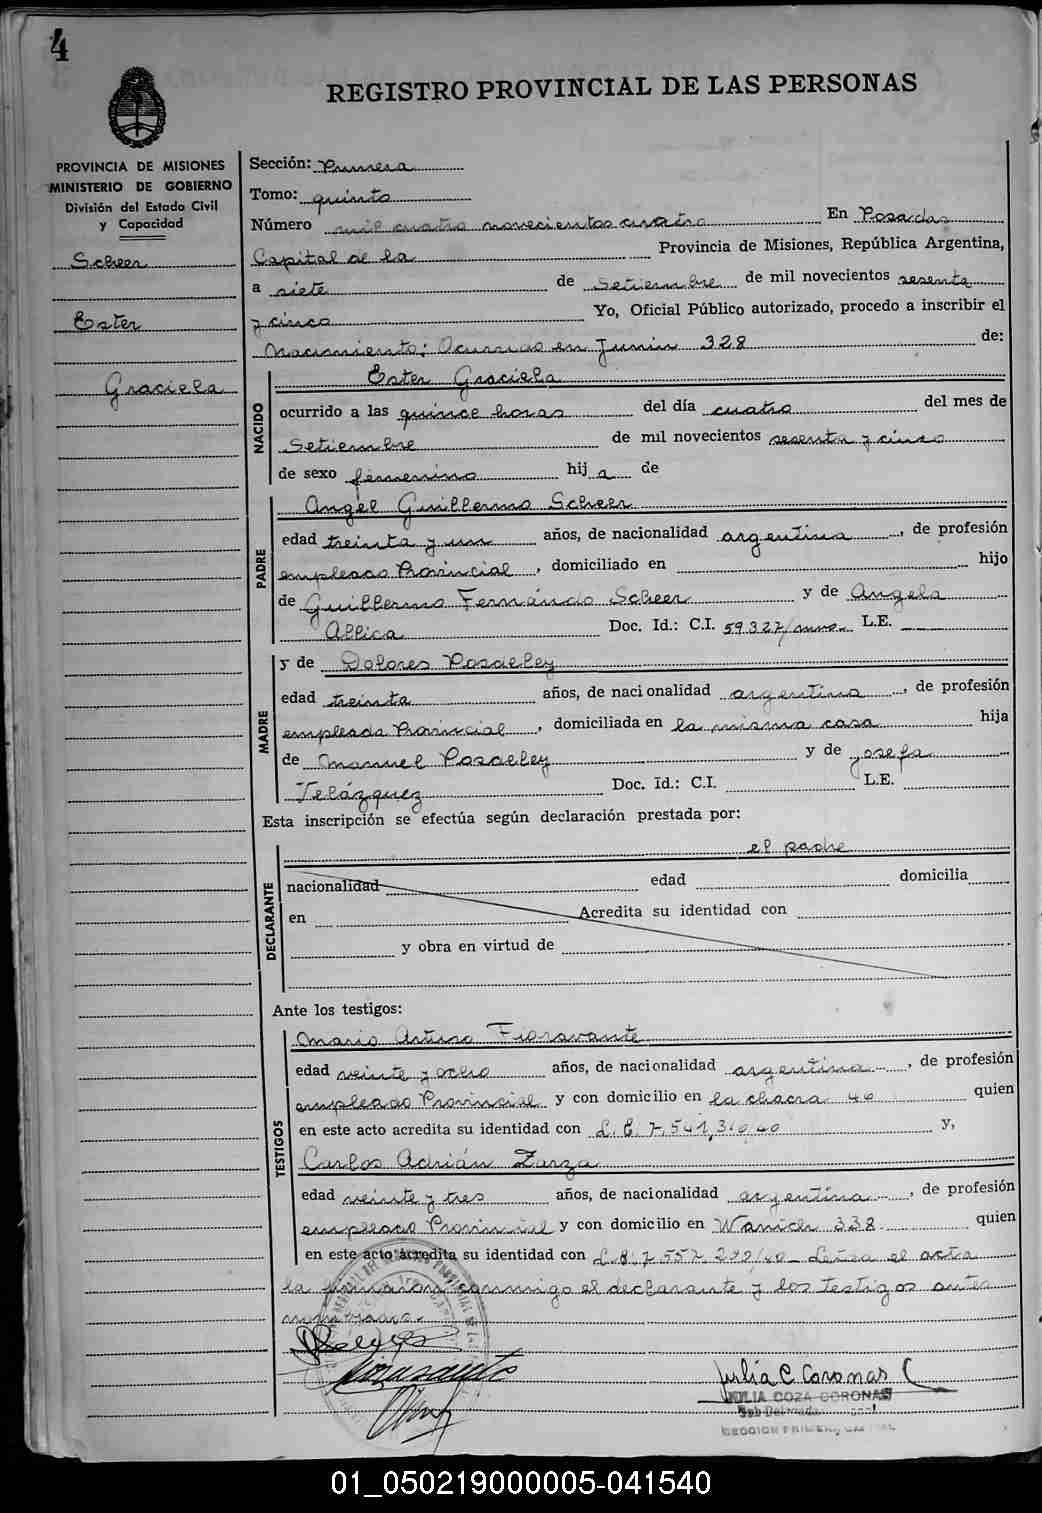 4
REGISTRO PROVINCIAL DE LAS PERSONAS
PROVINCIA DE MISIONES
MINISTERIO DE GOBIERNO
División del Estado Civil
y Capacidad
Scheer
Ester
Graciela
Sección: Primera
Tomo: quinto
Número mil cuatro novecientos cuatro En Posadas
Capital de la Provincia de Misiones, República Argentina,
a siete de Setiembre de mil novecientos sesenta
y cinco Yo, Oficial Público autorizado, procedo a inscribir el
Nacimiento: Ocurrido en Junín 328 de:
NACIDO
Ester Graciela
ocurrido a las quince horas del día cuatro del mes de
Setiembre de mil novecientos sesenta y cinco
de sexo femenino hija de
PADRE
Angel Guillermo Scheer
edad treinta y un años, de nacionalidad argentina, de profesión
empleado Provincial, domiciliado en hijo
de Guillermo Fernándo Scheer y de Angela
Allica Doc. Id.: C.I. 59.327/mnes. L.E.
MADRE
y de Dolores Posdeley
edad treinta años, de nacionalidad argentina, de profesión
empleada Provincial, domiciliada en la misma casa hija
de Manuel Posdeley y de Josefa
Velázquez Doc. Id.: C.I. L.E.
Esta inscripción se efectúa según declaración prestada por:
DECLARANTE
el padre
nacionalidad edad domicilia
en Acredita su identidad con
y obra en virtud de
Ante los testigos:
TESTIGOS
Mario Arturo Fioravante
edad veinte y ocho años, de nacionalidad argentina, de profesión
empleado Provincial y con domicilio en la chacra 46 quien
en este acto acredita su identidad con L.E. 7.541,310,40 y,
Carlos Adrián Zarza
edad veinte y tres años, de nacionalidad argentina, de profesión
empleado Provincial y con domicilio en Wanich 338 quien
en este acto acredita su identidad con L.E. 7.557.292/40 Leída el acta
la firmaron conmigo el declarante y los testigos antes
nombrado.
Julia C Coronas
JULIA COZA CORONAS
SECCION PRIMERA CAPITAL
01_050219000005-041540